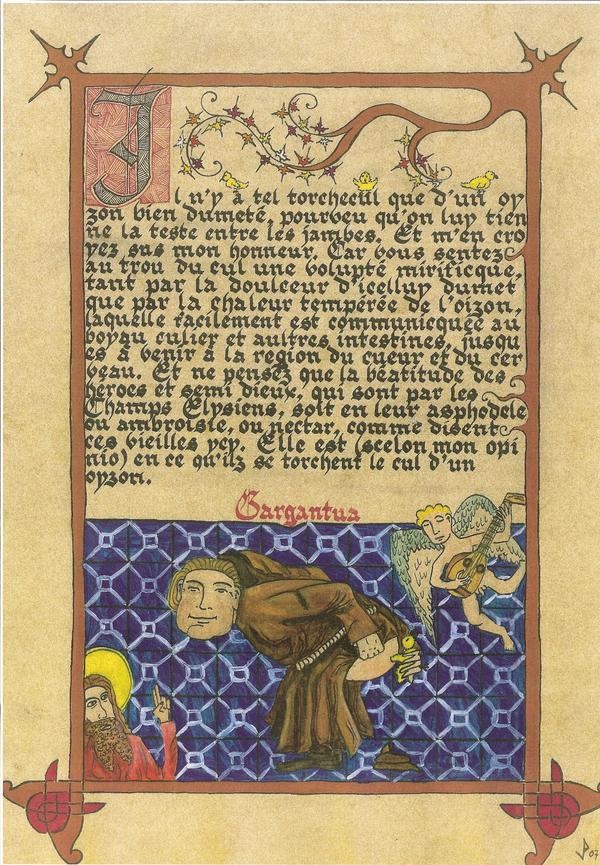 Il n'y a tel torchecul que d'un oy
zon bien dumeté, pourveu qu'on luy tien
ne la teste entre les jambes. Et m'en cro
yez sus mon honneur. Car vous sentez
au trou du cul une volupté mirificque,
tant par la doulceur d'icelluy dumet
que par la chaleur tempérée de l'oizon,
laquelle facilement est communicquée au
boyau culier et aultres intestines, jusqu
es à venir à la region du cueur et du cer
veau. Et ne pensez que la béatitude des
heroes et semi dieux, qui sont par les
Champs Elysiens, soit en leur asphodele
ou ambroisie, ou nectar, comme disent
ces vieilles ycy. Elle est (scelon mon opi
nio) en ce qu'ilz se torchent le cul d'un
oyzon.
Gargantua
JP 07